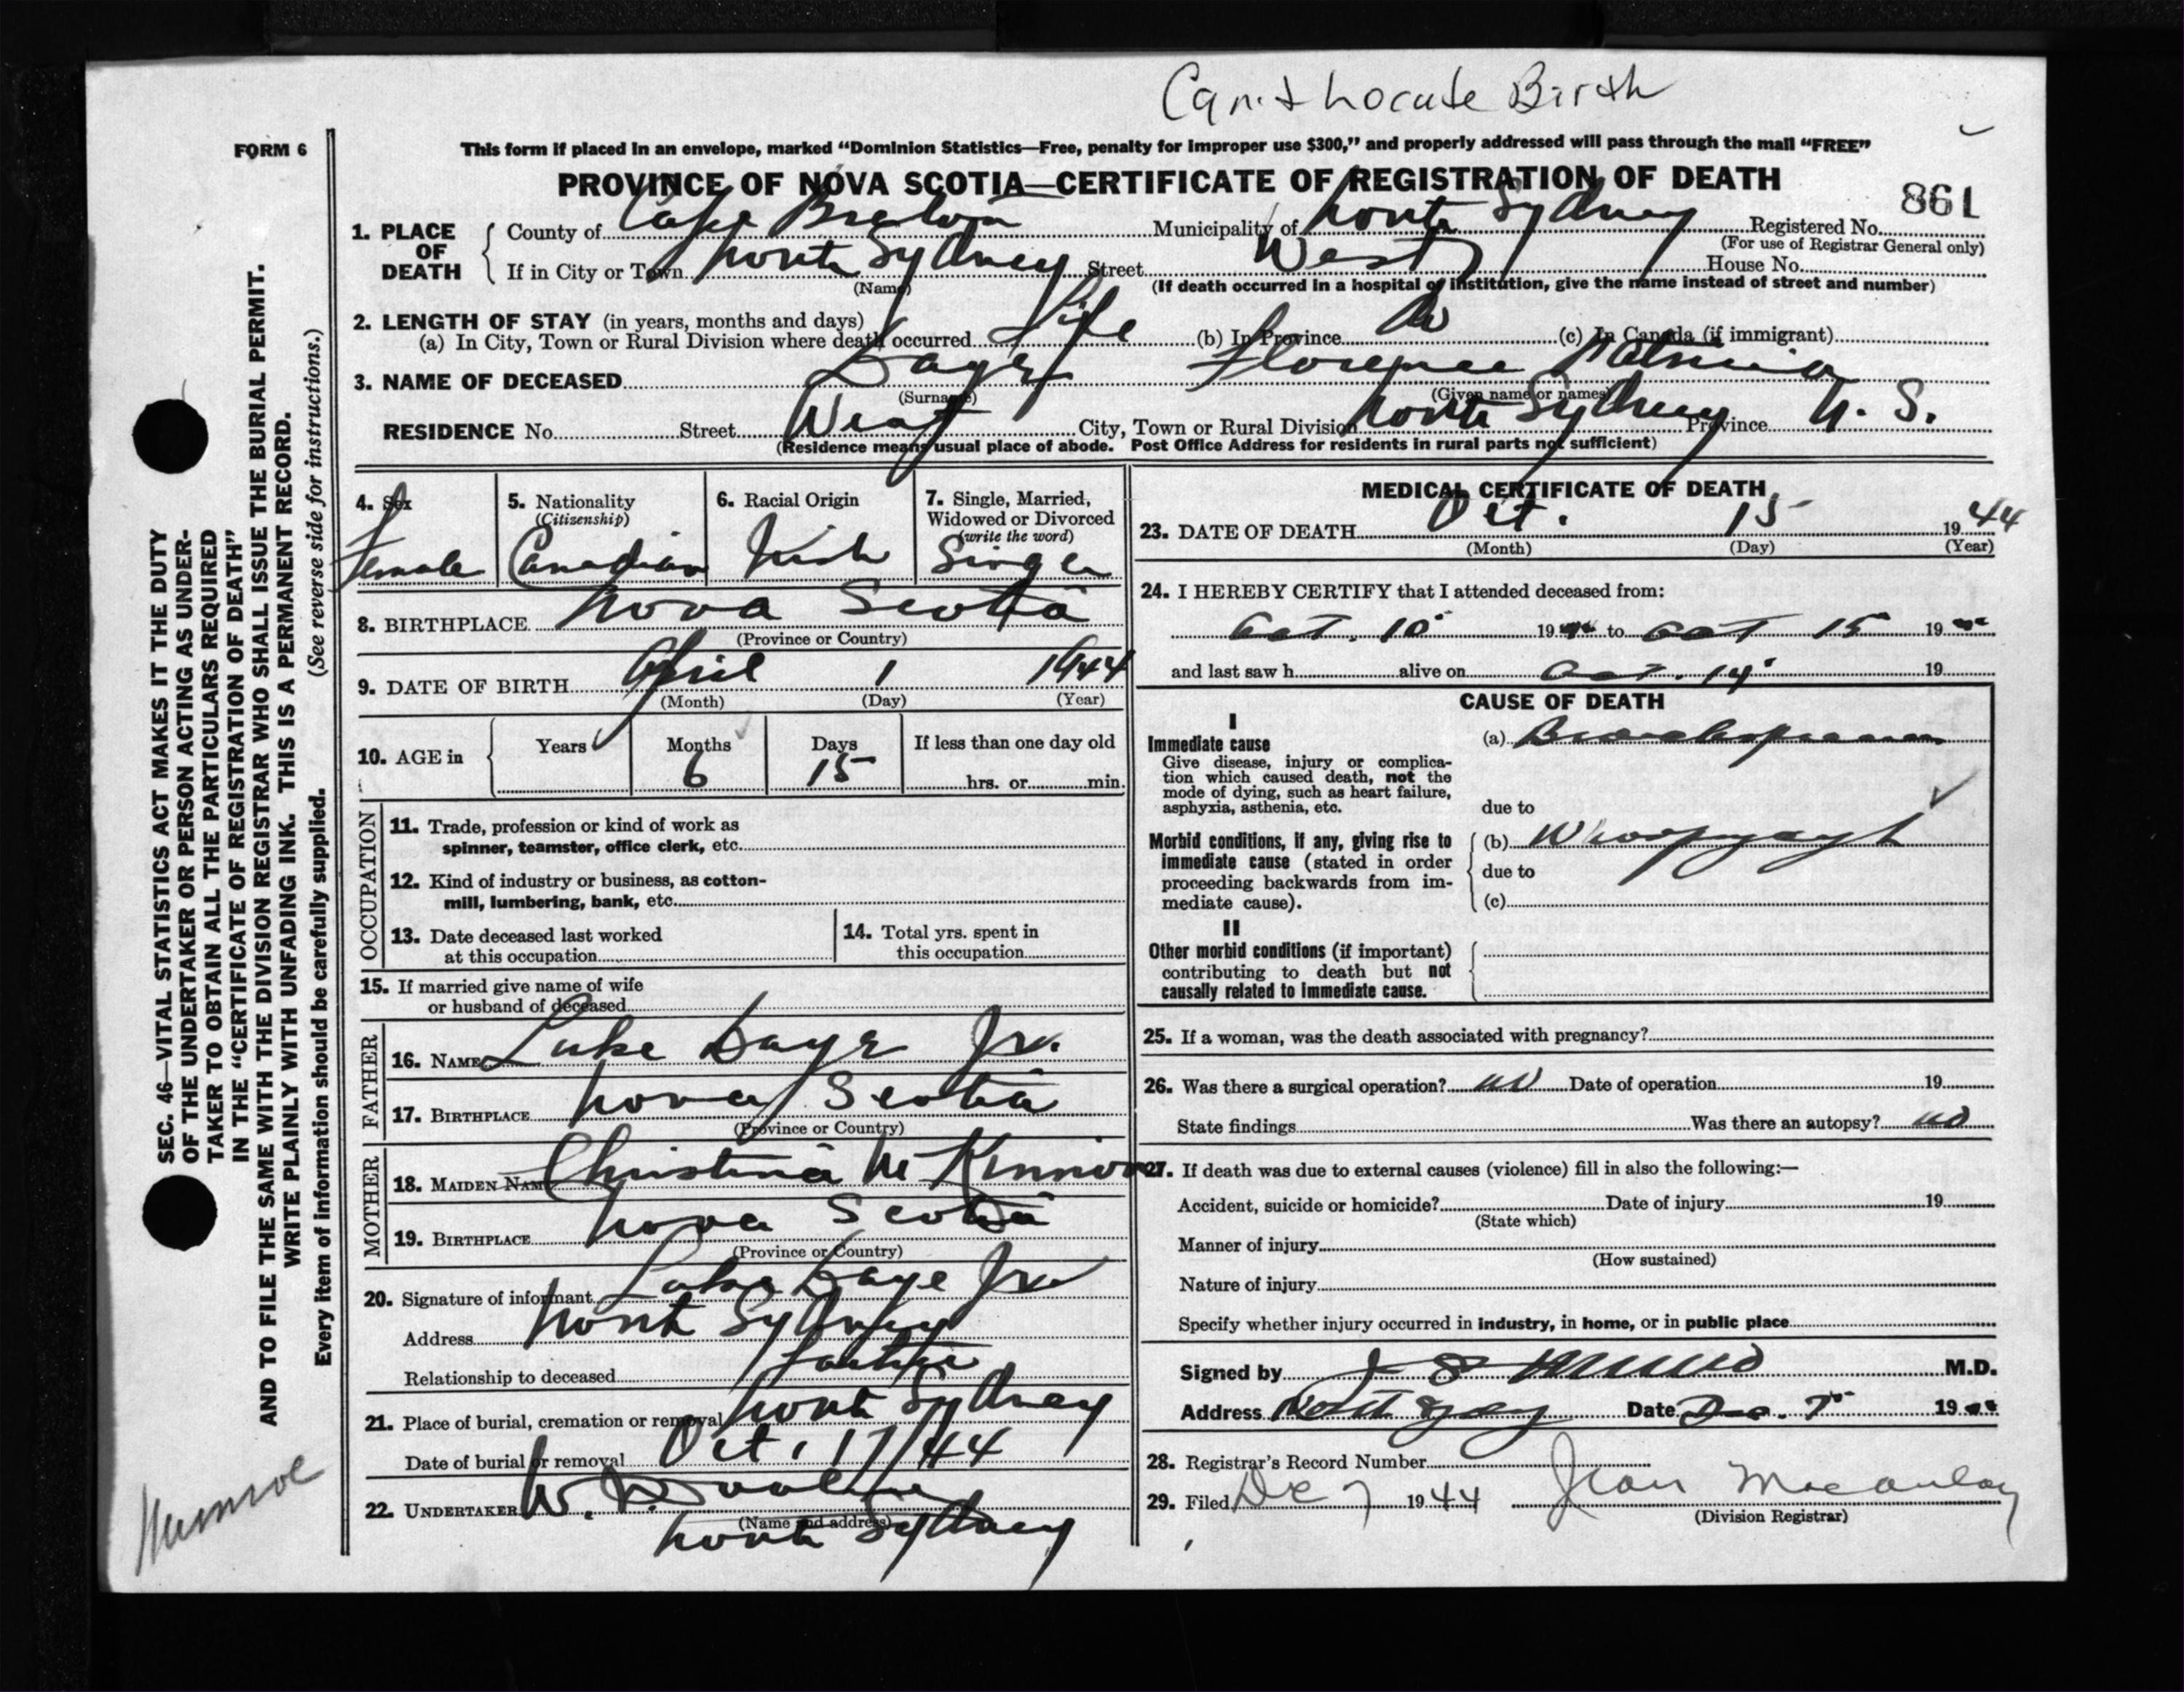 Can't Locate Birth
FORM 6
This form if placed in an envelope, marked "Dominion Statistics—Free, penalty for improper use $300," and properly addressed will pass through the mail "FREE"
PROVINCE OF NOVA SCOTIA—CERTIFICATE OF REGISTRATION OF DEATH
861
1. PLACE OF DEATH
County of Cape Breton Municipality of North Sydney Registered No.
(For use of Registrar General only)
If in City or Town North Sydney Street West House No.
(Name) (If death occurred in a hospital or institution, give the name instead of street and number)
2. LENGTH OF STAY (in years, months and days)
(a) In City, Town or Rural Division where death occurred Life (b) In Province (c) In Canada (if immigrant)
3. NAME OF DECEASED Daye Florence Patricia
(Surname) (Given name or names)
RESIDENCE No. Street West City, Town or Rural Division North Sydney Province N. S.
(Residence means usual place of abode. Post Office Address for residents in rural parts not sufficient)
4. Sex Female
5. Nationality (Citizenship) Canadian
6. Racial Origin Irish
7. Single, Married, Widowed or Divorced (write the word) Single
8. BIRTHPLACE Nova Scotia
(Province or Country)
9. DATE OF BIRTH April 1 1944
(Month) (Day) (Year)
10. AGE in Years Months 6 Days 15 If less than one day old
hrs. or min.
OCCUPATION
11. Trade, profession or kind of work as
spinner, teamster, office clerk, etc.
12. Kind of industry or business, as cotton-
mill, lumbering, bank, etc.
13. Date deceased last worked
at this occupation
14. Total yrs. spent in
this occupation
15. If married give name of wife
or husband of deceased
FATHER
16. NAME Luke Daye Jr.
17. BIRTHPLACE Nova Scotia
(Province or Country)
MOTHER
18. MAIDEN NAME Christina McKinnon
19. BIRTHPLACE Nova Scotia
(Province or Country)
20. Signature of informant Luke Daye Jr
Address North Sydney
Relationship to deceased Father
21. Place of burial, cremation or removal North Sydney
Date of burial or removal Oct. 17/44
22. UNDERTAKER W. J. Dooley
(Name and address)
North Sydney
MEDICAL CERTIFICATE OF DEATH
23. DATE OF DEATH Oct. 15 1944
(Month) (Day) (Year)
24. I HEREBY CERTIFY that I attended deceased from:
Oct. 10 1944 to Oct 15 19 44
and last saw h alive on Oct. 14 19
CAUSE OF DEATH
I
Immediate cause
Give disease, injury or complica-
tion which caused death, not the
mode of dying, such as heart failure,
asphyxia, asthenia, etc.
(a) Bronchopneumonia
due to
Morbid conditions, if any, giving rise to
immediate cause (stated in order
proceeding backwards from im-
mediate cause).
(b) Whooping cough
due to
(c)
II
Other morbid conditions (if important)
contributing to death but not
causally related to immediate cause.
25. If a woman, was the death associated with pregnancy?
26. Was there a surgical operation? no Date of operation 19
State findings Was there an autopsy? no
27. If death was due to external causes (violence) fill in also the following:—
Accident, suicide or homicide? Date of injury 19
(State which)
Manner of injury
(How sustained)
Nature of injury
Specify whether injury occurred in industry, in home, or in public place
Signed by M.D.
Address Date Dec. 7 1944
28. Registrar's Record Number
29. Filed Dec 7 1944 Jean Macaulay
(Division Registrar)
SEC. 46—VITAL STATISTICS ACT MAKES IT THE DUTY
OF THE UNDERTAKER OR PERSON ACTING AS UNDER-
TAKER TO OBTAIN ALL THE PARTICULARS REQUIRED
IN THE "CERTIFICATE OF REGISTRATION OF DEATH"
AND TO FILE THE SAME WITH THE DIVISION REGISTRAR WHO SHALL ISSUE THE BURIAL PERMIT.
WRITE PLAINLY WITH UNFADING INK. THIS IS A PERMANENT RECORD.
Every item of information should be carefully supplied. (See reverse side for instructions.)
Munroe